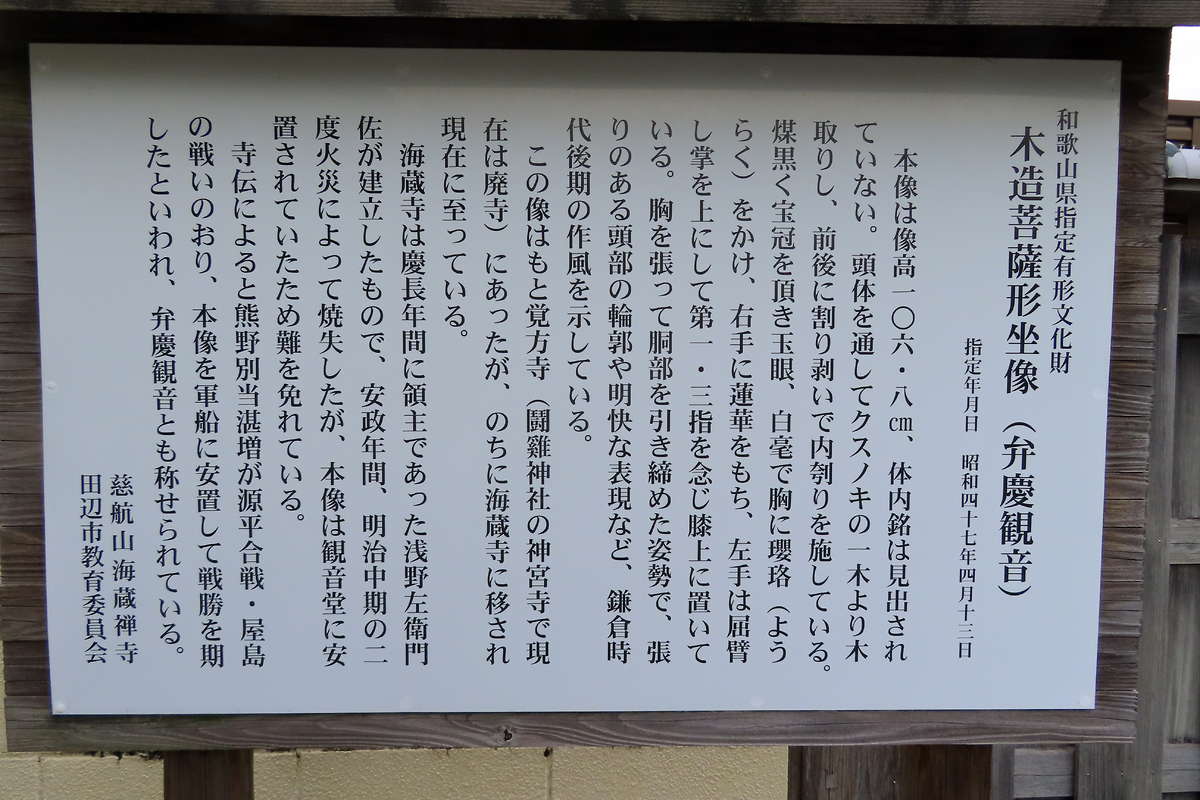 和歌山県指定有形文化財
木造菩薩形坐像（弁慶観音）
指定年月日　昭和四十七年四月十三日
本像は像高一〇六・八㎝、体内銘は見出され
ていない。頭体を通してクスノキの一木より木
取りし、前後に割り剥いで内刳りを施している。
煤黒く宝冠を頂き玉眼、白毫で胸に瓔珞（よう
らく）をかけ、右手に蓮華をもち、左手は屈臂
し掌を上にして第一・三指を念じ膝上に置いて
いる。胸を張って胴部を引き締めた姿勢で、張
りのある頭部の輪郭や明快な表現など、鎌倉時
代後期の作風を示している。
この像はもと覚方寺（闘雞神社の神宮寺で現
在は廃寺）にあったが、のちに海蔵寺に移され
現在に至っている。
海蔵寺は慶長年間に領主であった浅野左衛門
佐が建立したもので、安政年間、明治中期の二
度火災によって焼失したが、本像は観音堂に安
置されていたため難を免れている。
寺伝によると熊野別当湛増が源平合戦・屋島
の戦いのおり、本像を軍船に安置して戦勝を期
したといわれ、弁慶観音とも称せられている。
慈航山海蔵禅寺
田辺市教育委員会